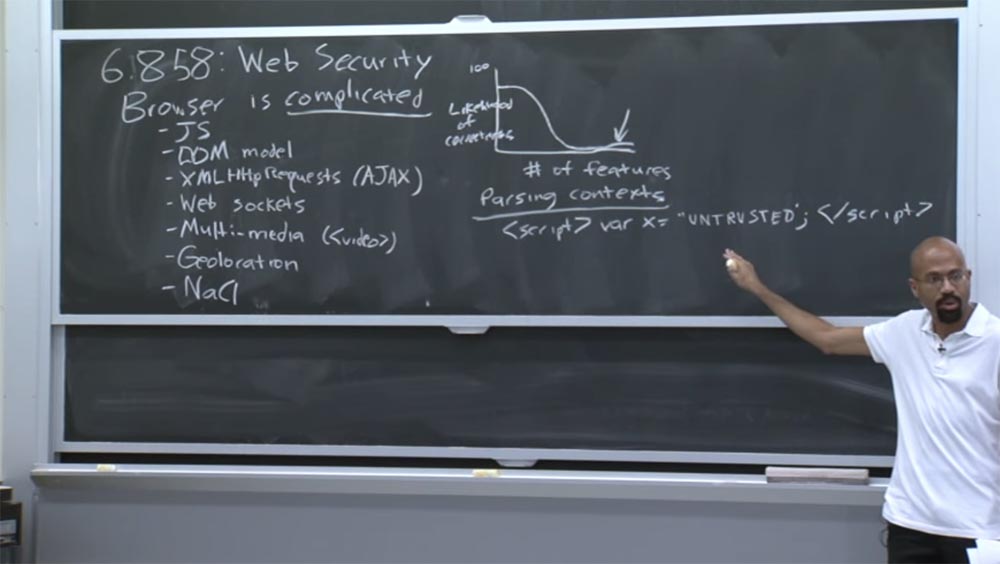 6.858: Web Security
Browser is complicated
- JS
- DOM model
- XMLHttpRequests (AJAX)
- Web sockets
- Multi-media (<video>)
- Geoloration
- NaCl
100
Likelihood
of
correctness
# of features
Parsing contexts
<script> var x= "UNTRUSTED"; </script>